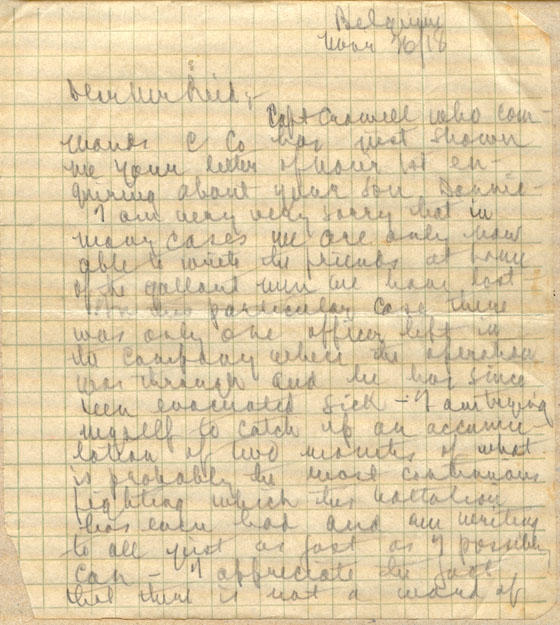 Belgium
Nov 26/18
Dear Mr Reid,
Capt Crowell who com
mands C Co has just shown
me your letter of Nov 1st en-
quiring about your son Dannie-
I am very very sorry that in
many cases we are only now
able to write the friends at home
of the gallant men we have lost
In this particular case there
was only one officer left in
the company when the operation
was through and he has since
been evacuated sick - I am trying
myself to catch up an accumu-
lation of two months of what
is probably the most continuous
fighting which this battalion
has ever had and am writing
to all just as fast as I possibly
can - I appreciate the fact
that there is not a word of